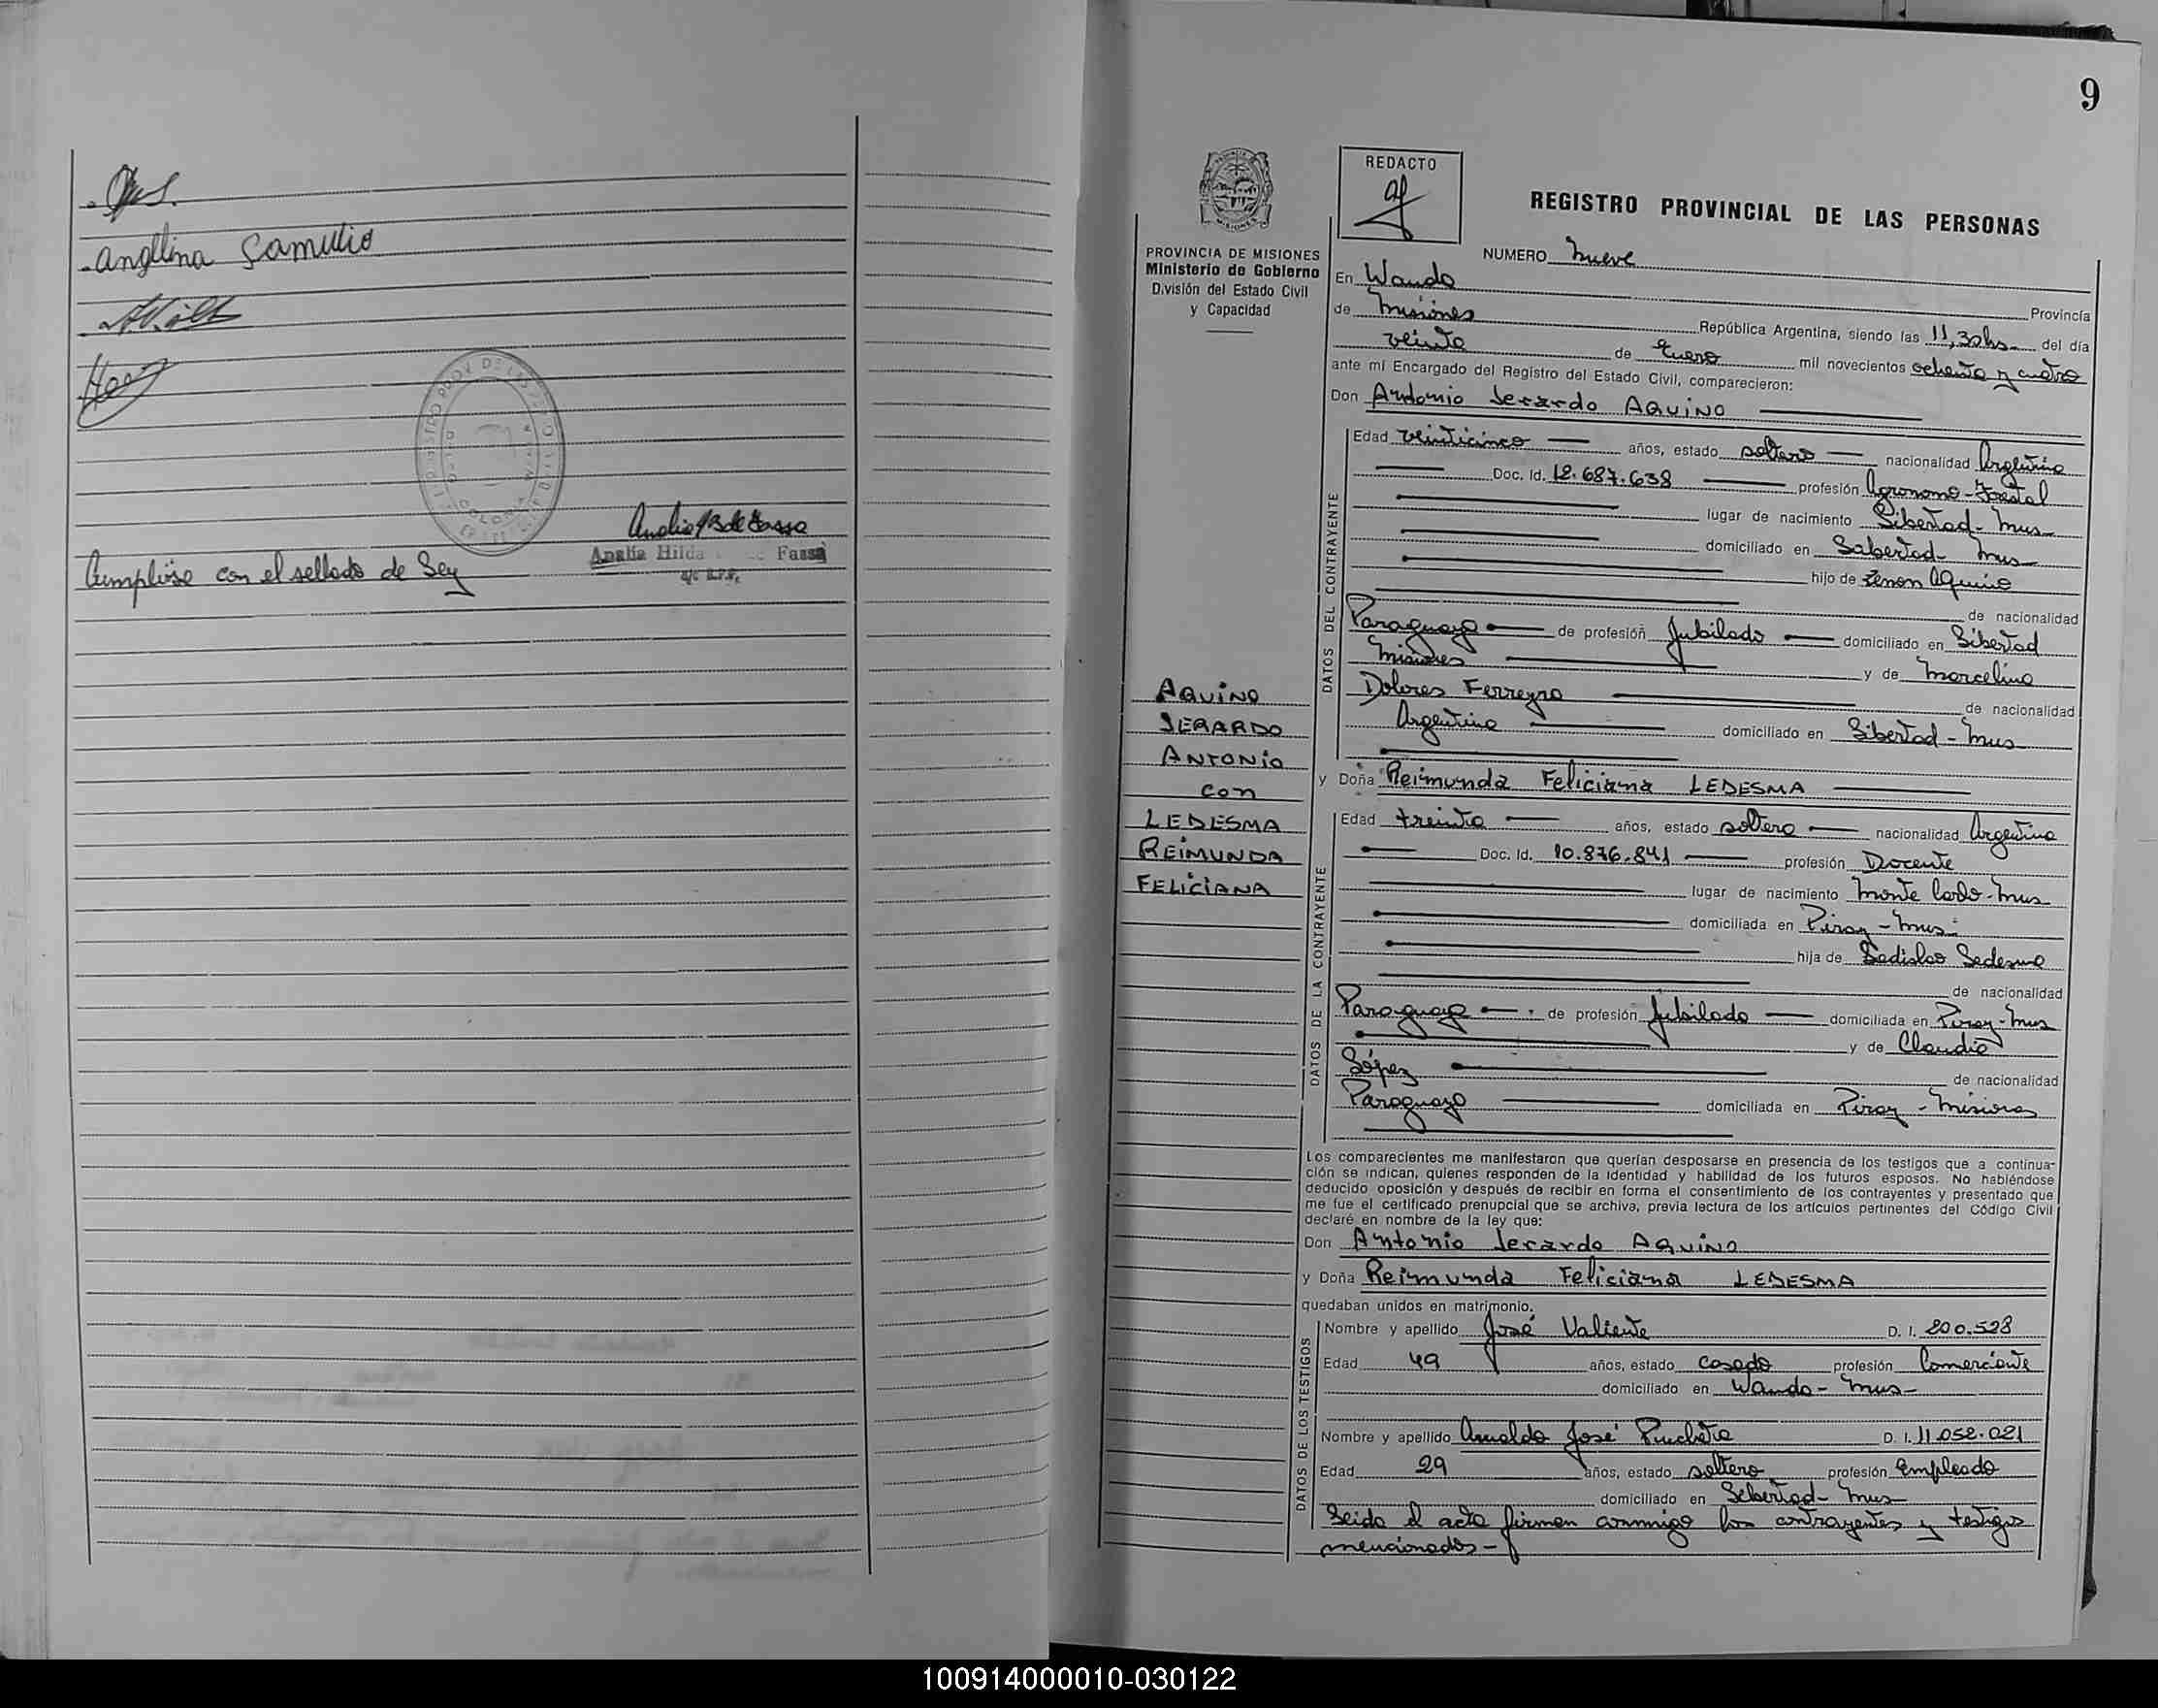 Angelina Samudio
Cumpliose con el sellado de Ley
Analia Hilda Fassa
9
REDACTO
REGISTRO PROVINCIAL DE LAS PERSONAS
PROVINCIA DE MISIONES
Ministerio de Gobierno
División del Estado Civil
y Capacidad
NUMERO nueve
En Wanda Provincia
de Misiones República Argentina, siendo las 11,30hs del día
veinte de Enero mil novecientos ochenta y cuatro
ante mí Encargado del Registro del Estado Civil, comparecieron:
Don Antonio Jerardo AQUINO
DATOS DEL CONTRAYENTE
Edad veinticinco años, estado soltero nacionalidad Argentina
Doc. Id. 12.687.638 profesión Agronomo-Forestal
lugar de nacimiento Libertad - Mns
domiciliado en Libertad - Mns
hijo de Zenon Aquino
de nacionalidad
Paraguaya de profesión Jubilado domiciliado en Libertad
Misiones y de Marcelina
Dolores Ferreyra de nacionalidad
Argentina domiciliado en Libertad - Mns
AQUINO
JERARDO
ANTONIO
con
LEDESMA
REIMUNDA
FELICIANA
y Doña Reimunda Feliciana LEDESMA
DATOS DE LA CONTRAYENTE
Edad treinta años, estado soltera nacionalidad Argentina
Doc. Id. 10.876.841 profesión Docente
lugar de nacimiento Monte Carlo - Mns
domiciliada en Piray - Mns
hija de Ladislao Ledesma
de nacionalidad
Paraguaya de profesión Jubilado domiciliada en Piray - Mns
y de Claudia
López de nacionalidad
Paraguaya domiciliada en Piray - Misiones
Los comparecientes me manifestaron que querían desposarse en presencia de los testigos que a continua-
ción se indican, quienes responden de la identidad y habilidad de los futuros esposos. No habiéndose
deducido oposición y después de recibir en forma el consentimiento de los contrayentes y presentado que
me fue el certificado prenupcial que se archiva, previa lectura de los artículos pertinentes del Código Civil
declaré en nombre de la ley que:
Don Antonio Jerardo AQUINO
y Doña Reimunda Feliciana LEDESMA
quedaban unidos en matrimonio.
DATOS DE LOS TESTIGOS
Nombre y apellido José Valiente D. I. 200.528
Edad 49 años, estado casado profesión Comerciante
domiciliado en Wanda - Mns
Nombre y apellido Arnaldo José D. I. 11.052.021
Edad 29 años, estado soltero profesión Empleado
domiciliado en Libertad - Mns
Leida el acta firman conmigo los contrayentes y testigos
mencionados -
100914000010-030122